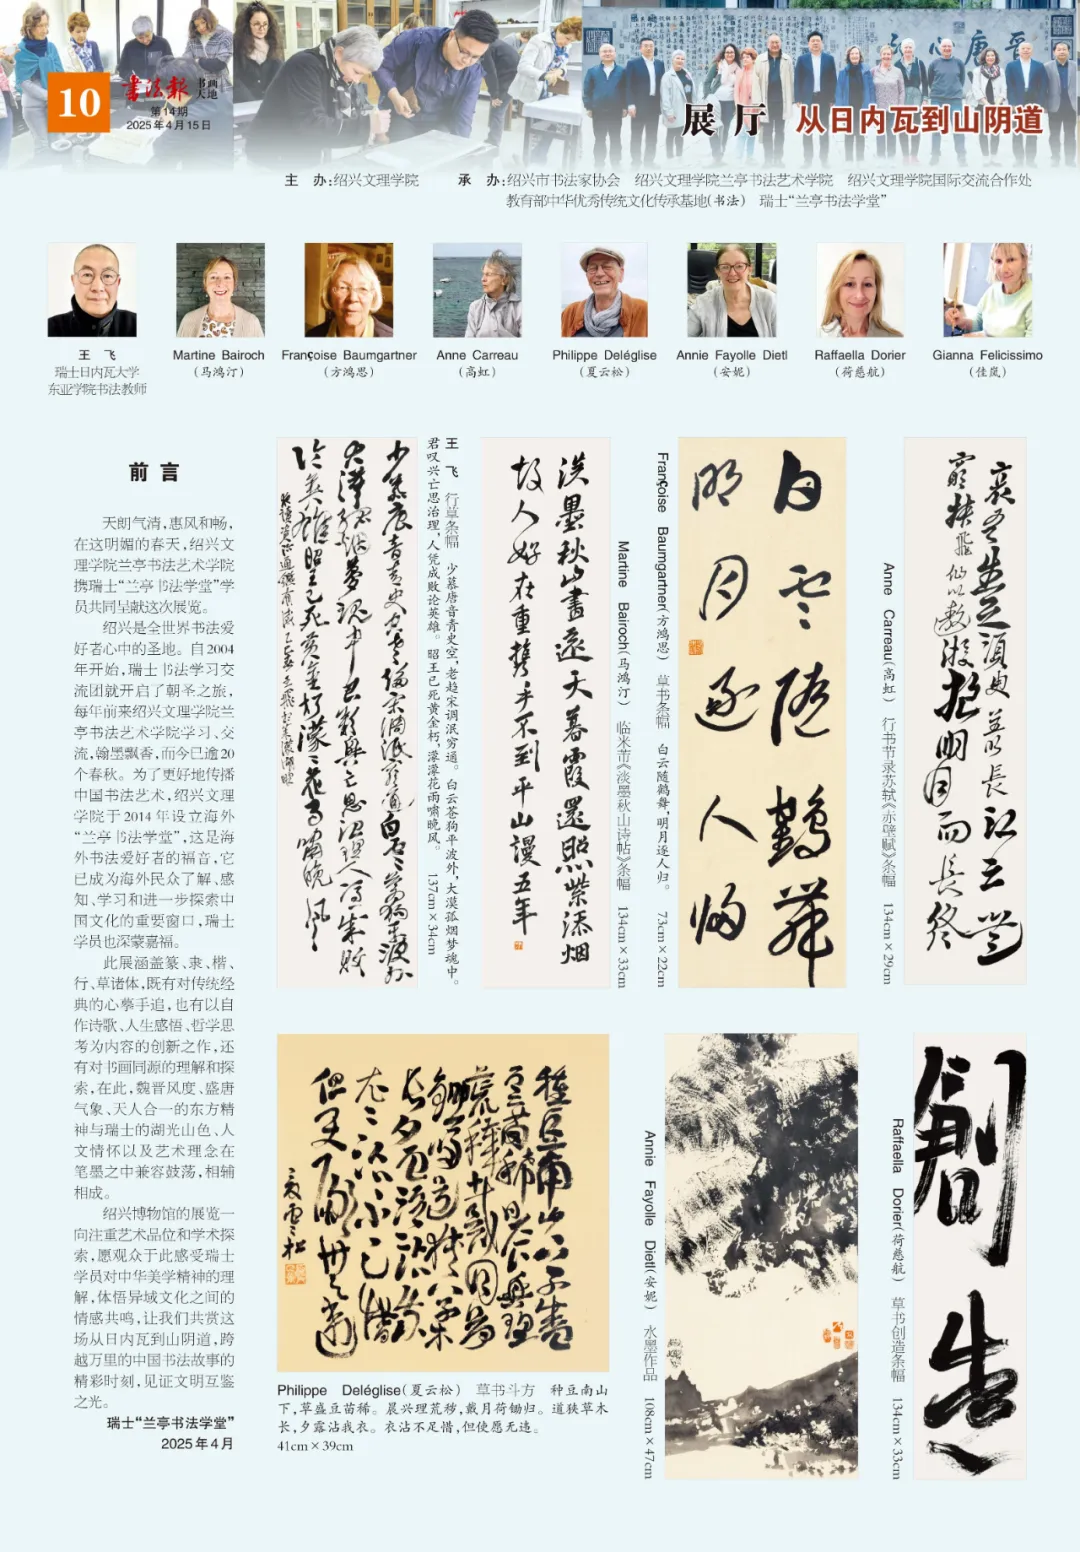 10
书法报 书画天地
第14期
2025年4月15日
展厅 从日内瓦到山阴道
主 办:绍兴文理学院 承 办:绍兴市书法家协会 绍兴文理学院兰亭书法艺术学院 绍兴文理学院国际交流合作处
教育部中华优秀传统文化传承基地(书法) 瑞士“兰亭书法学堂”
王 飞
瑞士日内瓦大学
东亚学院书法教师
Martine Bairoch
(马鸿汀)
Françoise Baumgartner
(方鸿思)
Anne Carreau
(高虹)
Philippe Deléglise
(夏云松)
Annie Fayolle Dietl
(安妮)
Raffaella Dorier
(荷慈航)
Gianna Felicissimo
(佳岚)
前 言
天朗气清,惠风和畅,
在这明媚的春天,绍兴文
理学院兰亭书法艺术学院
携瑞士“兰亭书法学堂”学
员共同呈献这次展览。
绍兴是全世界书法爱
好者心中的圣地。自2004
年开始,瑞士书法学习交
流团就开启了朝圣之旅,
每年前来绍兴文理学院兰
亭书法艺术学院学习、交
流,翰墨飘香,而今已逾20
个春秋。为了更好地传播
中国书法艺术,绍兴文理
学院于2014年设立海外
“兰亭书法学堂”,这是海
外书法爱好者的福音,它
已成为海外民众了解、感
知、学习和进一步探索中
国文化的重要窗口,瑞士
学员也深蒙嘉福。
此展涵盖篆、隶、楷、
行、草诸体,既有对传统经
典的心摹手追,也有以自
作诗歌、人生感悟、哲学思
考为内容的创新之作,还
有对书画同源的理解和探
索,在此,魏晋风度、盛唐
气象、天人合一的东方精
神与瑞士的湖光山色、人
文情怀以及艺术理念在
笔墨之中兼容鼓荡,相辅
相成。
绍兴博物馆的展览一
向注重艺术品位和学术探
索,愿观众于此感受瑞士
学员对中华美学精神的理
解,体悟异域文化之间的
情感共鸣,让我们共赏这
场从日内瓦到山阴道,跨
越万里的中国书法故事的
精彩时刻,见证文明互鉴
之光。
瑞士“兰亭书法学堂”
2025年4月
王 飞 行草条幅 少慕唐音青史空,老趋宋调泯穷通。白云苍狗平波外,大漠孤烟梦魂中。
君叹兴亡思治理,人凭成败论英雄。昭王已死黄金朽,濛濛花雨啸晚风。 137cm×34cm
淡墨秋山画远天暮霞还照紫添烟
故人好在重携手不到平山谩五年
Martine Bairoch(马鸿汀) 临米芾《淡墨秋山诗帖》条幅 134cm×33cm
Françoise Baumgartner(方鸿思) 草书条幅 白云随鹤舞,明月逐人归。 73cm×22cm
白云随鹤舞
明月逐人归
Anne Carreau(高虹) 行书节录苏轼《赤壁赋》条幅 134cm×29cm
哀吾生之须臾羡长江之无
穷挟飞仙以遨游抱明月而长终
Philippe Deléglise(夏云松) 草书斗方 种豆南山
下,草盛豆苗稀。晨兴理荒秽,戴月荷锄归。道狭草木
长,夕露沾我衣。衣沾不足惜,但使愿无违。
41cm×39cm
Annie Fayolle Dietl(安妮) 水墨作品 108cm×47cm
Raffaella Dorier(荷慈航) 草书创造条幅 134cm×33cm
创造